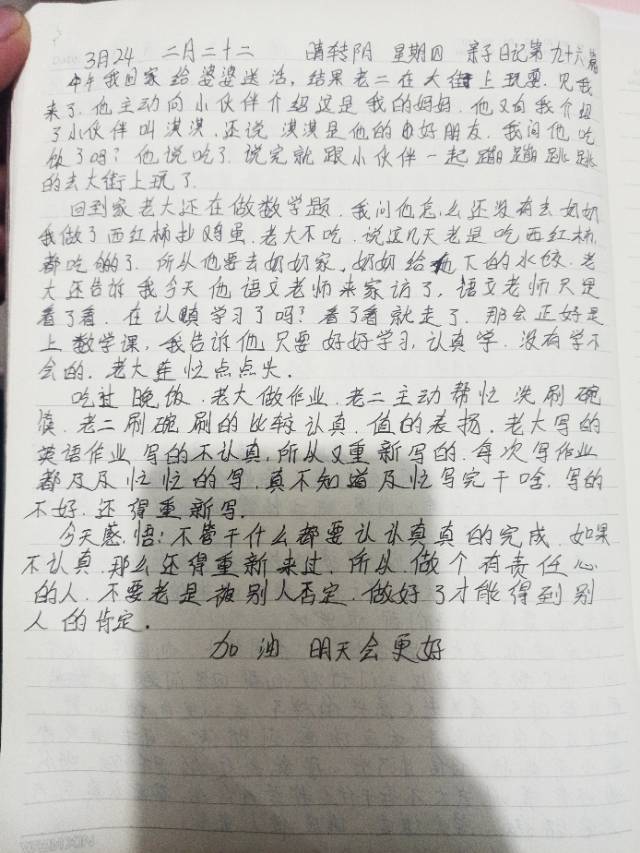 3月24 二月二十二 晴转阴 星期四 亲子日记第九十六篇
中午我回家给婆婆送活，结果老二在大街上玩耍.见我
来了.他主动向小伙伴介绍这是我的妈妈.他又向我介绍
了小伙伴叫淇淇，还说淇淇是他的好朋友.我问他吃
饭了吗?他说吃了.说完就跟小伙伴一起蹦蹦跳跳
的去大街上玩了.
回到家老大还在做数学题.我问他怎么还没有去奶奶
我做了西红柿抄鸡蛋.老大不吃.说这几天老是吃西红柿,
都吃够了.所以他要去奶奶家,奶奶给他下的水饺.老
大还告诉我今天他语文老师来家访了,语文老师只是
看了看.在认真学习了吗?看了看就走了.那会正好是
上数学课,我告诉他只要好好学习,认真学.没有学不
会的.老大连忙点点头.
吃过晚饭.老大做作业.老二主动帮忙洗刷碗
筷.老二刷碗刷的比较认真.值的表扬.老大写的
英语作业写的不认真,所以又重新写的.每次写作业
都及及忙忙的写.真不知道及忙写完干啥.写的
不好.还得重新写.
今天感悟:不管干什么都要认认真真的完成.如果
不认真.那么还得重新来过.所以.做个有责任心
的人.不要老是被别人否定.做好了才能得到别
人的肯定.
加油 明天会更好